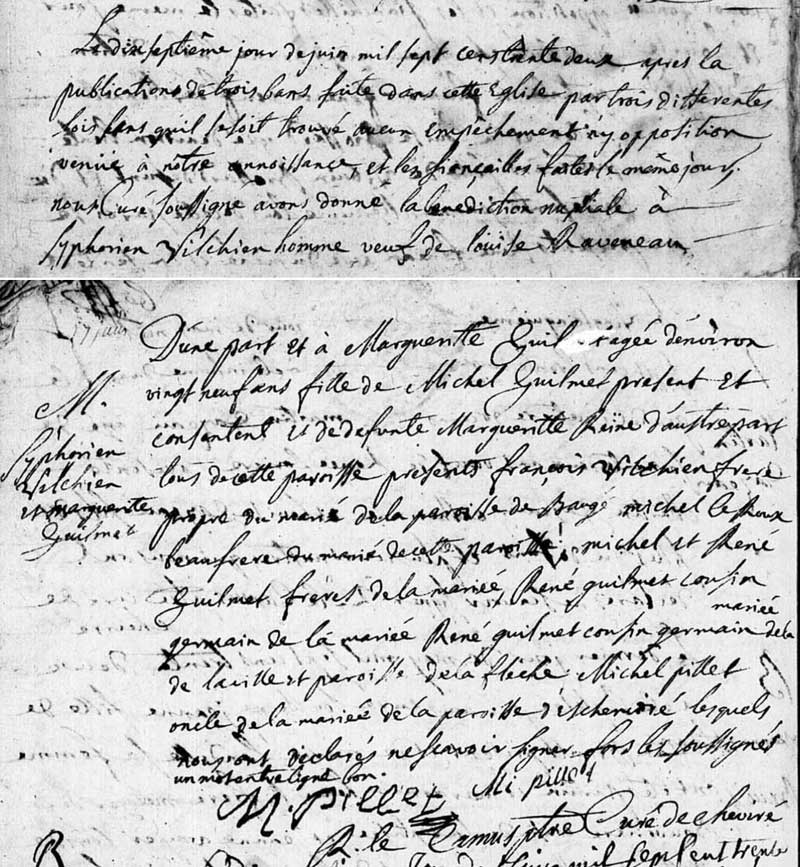 Le dixseptiéme jour dejuin mil sept cens trente deux apres la
publication detrois bans faite dans cette Eglise partrois differentes
fois sans quil sesoit trouvé aucun empéchement ny opposition
venüe à nôtre connoissance, et les fiançailles faites le méme jour,
nous Curé soussigné avons donné la benediction nuptiale à
syphorien Vilchien homme veuf de louise Raveneau
17 juin
D'une part et à Margueritte Guil et agée denviron
vingt neuf ans fille de Michel Guilmet present et
consentent et dedefunte Margueritte Reine d'austre part
tous decette paroisse presents françois Vilchien frere
propre du marié dela paroisse de Baugé michel le Roux
beaufrere du marié decette paroisse michel et René
Guilmet freres dela mariée René guilmet cousin
mariée
germain de la mariée René guilmet cousin germain dela
de laville et paroisse dela flèche Michel pillet
oncle dela mariée dela paroisse d'Echemiré lesquels
nous ont declarés nescavoir signer fors les soussignés
un mot entre ligne bon.
M.
syphorien
Vilchien
et marguerite
Guilmet
M. Pillet
Mi pillet
R. le ptre Curé de cheviré
mil sept cent trente